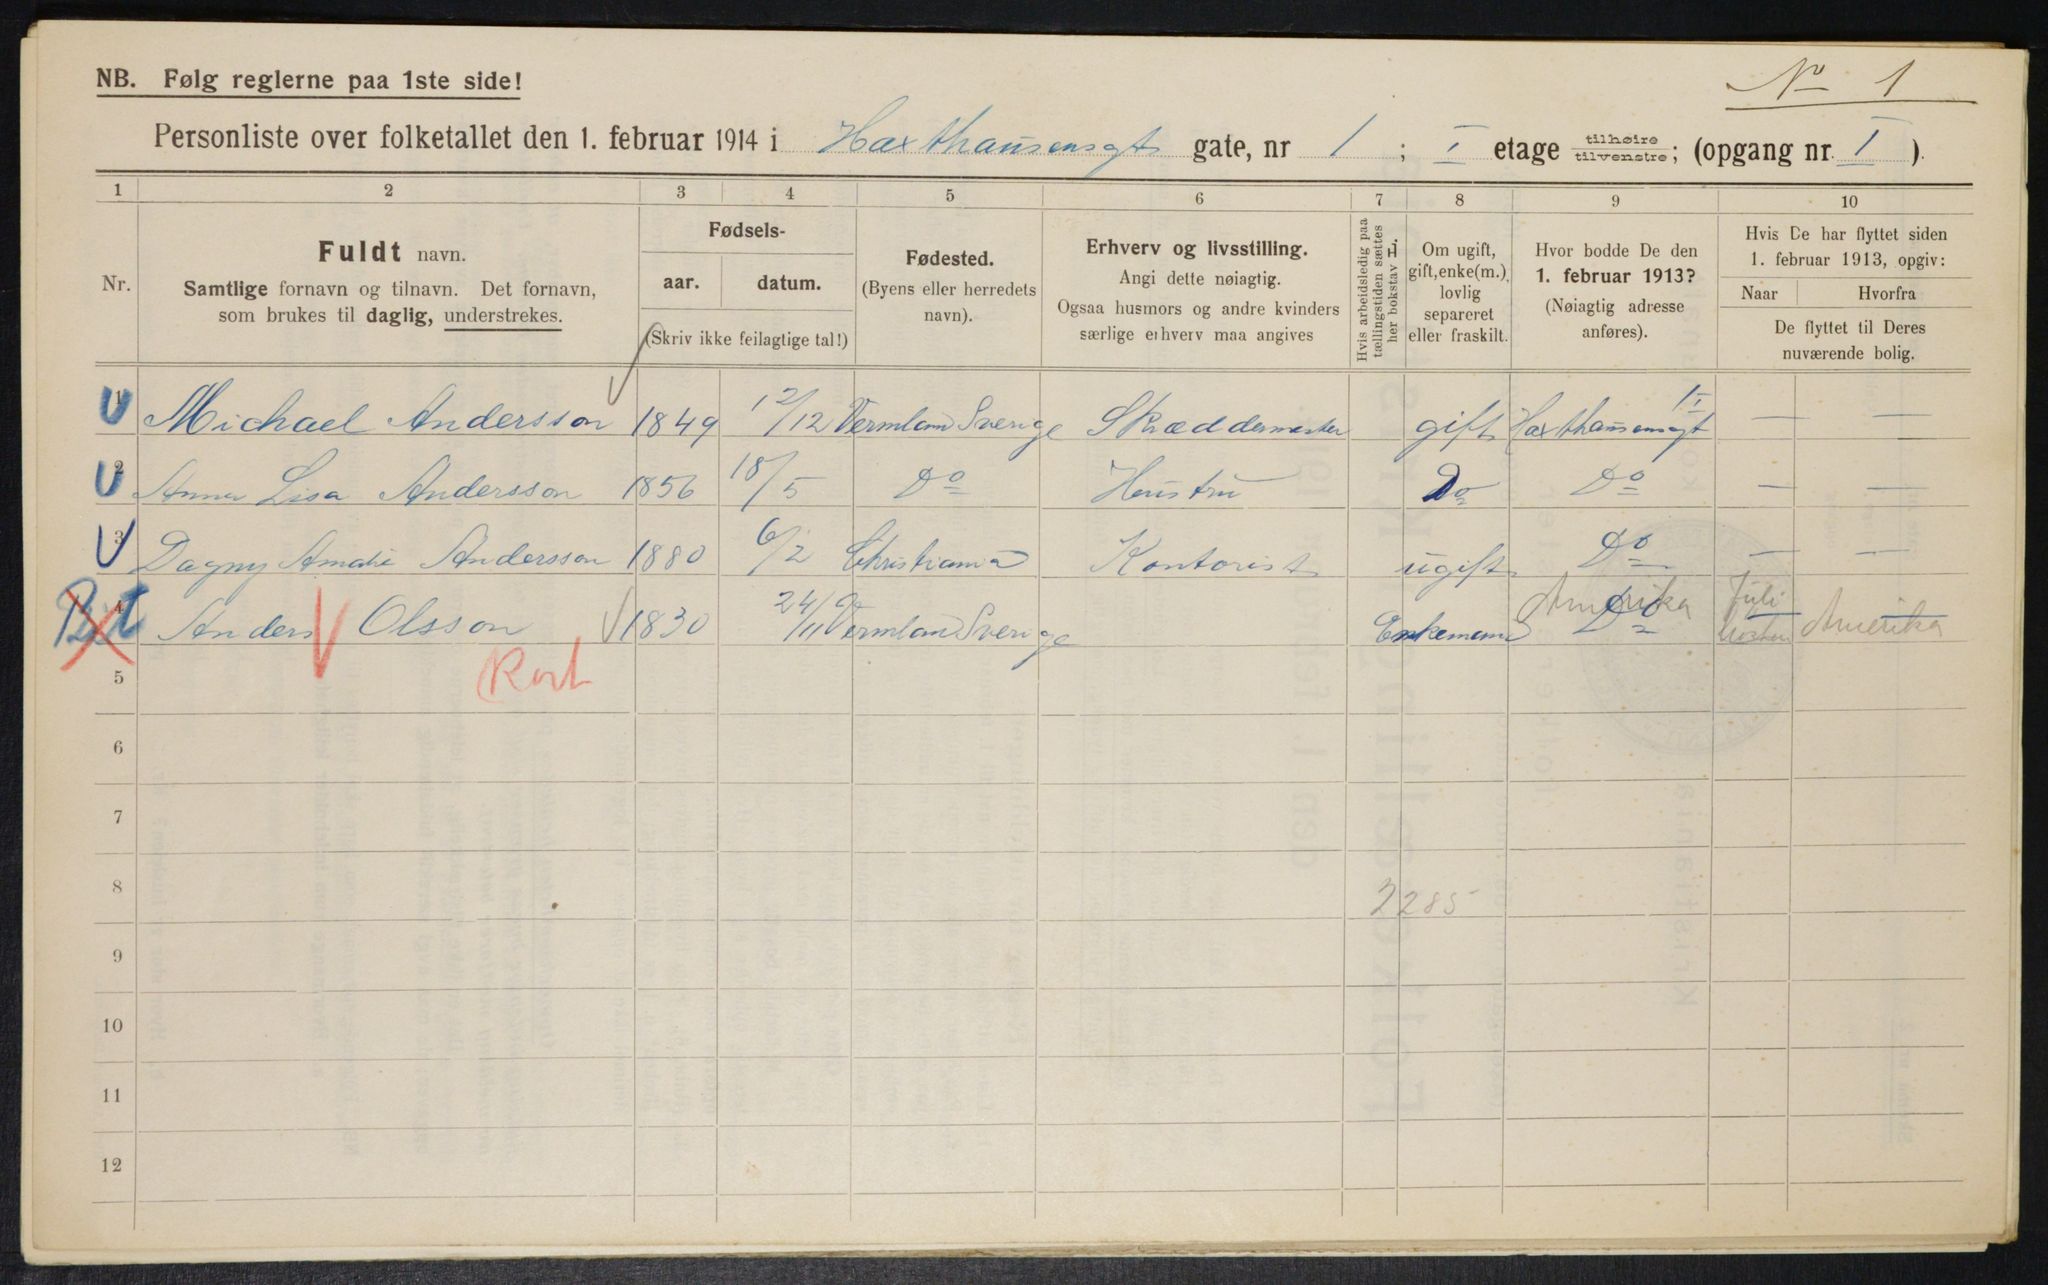 No 1
NB. Følg reglerne paa 1ste side!
Personliste over folketallet den 1. februar 1914 i Haxthausensgt gate, nr 1 ; I etage tilhøire/tilvenstre; (opgang nr. I ).
1 2 3 4 5 6 7 8 9 10
Nr.
Fuldt navn.
Samtlige fornavn og tilnavn. Det fornavn,
som brukes til daglig, understrekes.
Fødsels-
aar. datum.
(Skriv ikke feilagtige tal!)
Fødested.
(Byens eller herredets
navn).
Erhverv og livsstilling.
Angi dette nøiagtig.
Ogsaa husmors og andre kvinders
særlige erhverv maa angives
Hvis arbeidsledig paa
tællingstiden sættes
her bokstav H.
Om ugift,
gift, enke(m.),
lovlig
separeret
eller fraskilt.
Hvor bodde De den
1. februar 1913?
(Nøiagtig adresse
anføres).
Hvis De har flyttet siden
1. februar 1913, opgiv:
Naar Hvorfra
De flyttet til Deres
nuværende bolig.
1 Michael Andersson 1849 12/12 Vermland Sverige Skræddermester gift Haxthausensgt 1 I — —
2 Anna Lisa Andersson 1856 18/5 Do Hustru Do Do — —
3 Dagny Amalie Andersson 1880 6/2 Christiania Kontorist ugift Do — —
4 Anders Olsson 1830 24/11 Vermland Sverige Enkemand Do Amerika Juli Amerika
Kort
5
6
7
8
2285
9
10
11
12